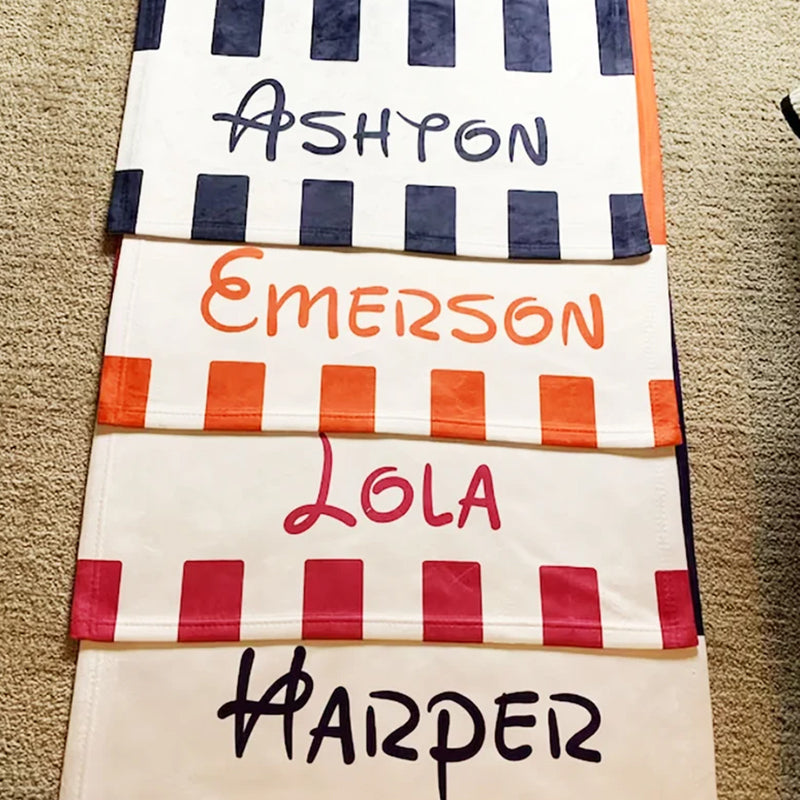 Ashton
Emerson
Lola
Harper